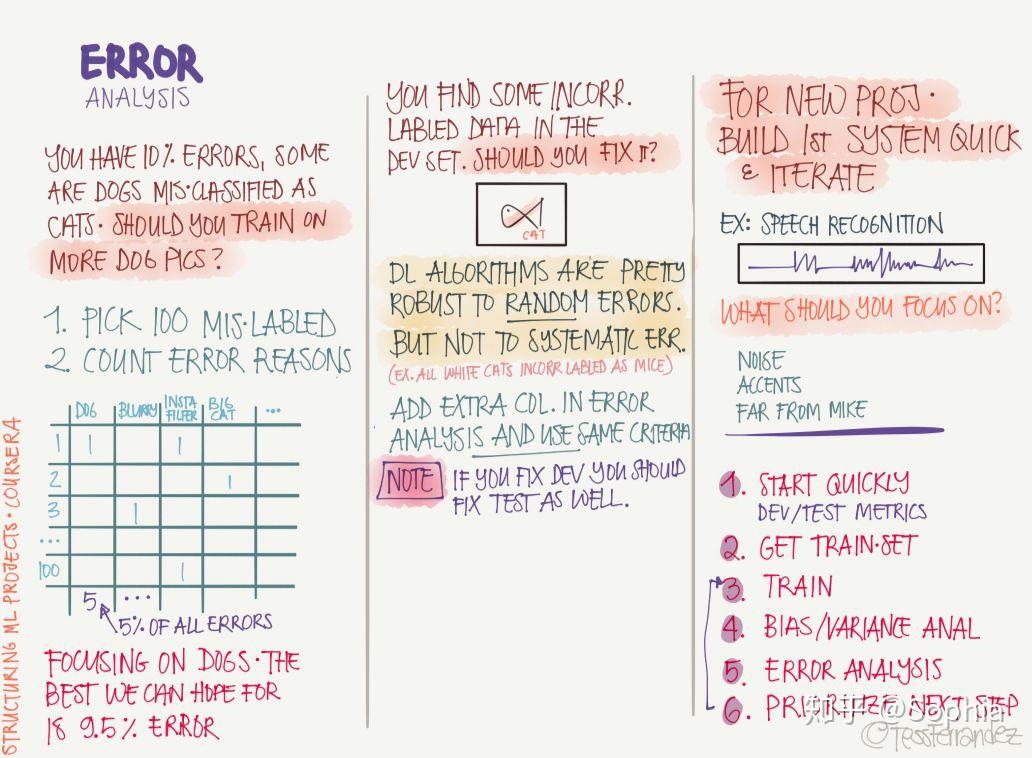 ERROR
ANALYSIS
YOU HAVE 10% ERRORS, SOME
ARE DOGS MIS·CLASSIFIED AS
CATS· SHOULD YOU TRAIN ON
MORE DOG PICS?
1. PICK 100 MIS·LABLED
2. COUNT ERROR REASONS
DOG BLURRY INSTA FILTER BIG CAT ...
1 1 1
2 1
3 1
...
100 1
5 ...
5% OF ALL ERRORS
FOCUSING ON DOGS· THE
BEST WE CAN HOPE FOR
IS 9.5% ERROR
STRUCTURING ML PROJECTS · COURSERA
YOU FIND SOME INCORR.
LABLED DATA IN THE
DEV SET. SHOULD YOU FIX IT?
CAT
DL ALGORITHMS ARE PRETTY
ROBUST TO RANDOM ERRORS.
BUT NOT TO SYSTEMATIC ERR.
(EX. ALL WHITE CATS INCORR LABLED AS MICE)
ADD EXTRA COL. IN ERROR
ANALYSIS AND USE SAME CRITERIA
NOTE IF YOU FIX DEV YOU SHOULD
FIX TEST AS WELL.
FOR NEW PROJ·
BUILD 1st SYSTEM QUICK
& ITERATE
EX: SPEECH RECOGNITION
WHAT SHOULD YOU FOCUS ON?
NOISE
ACCENTS
FAR FROM MIKE
1. START QUICKLY
DEV/TEST METRICS
2. GET TRAIN·SET
3. TRAIN
4. BIAS/VARIANCE ANAL
5. ERROR ANALYSIS
6. PRIORITIZE NEXT STEP
知乎 @Sophia
@TessFerrandez